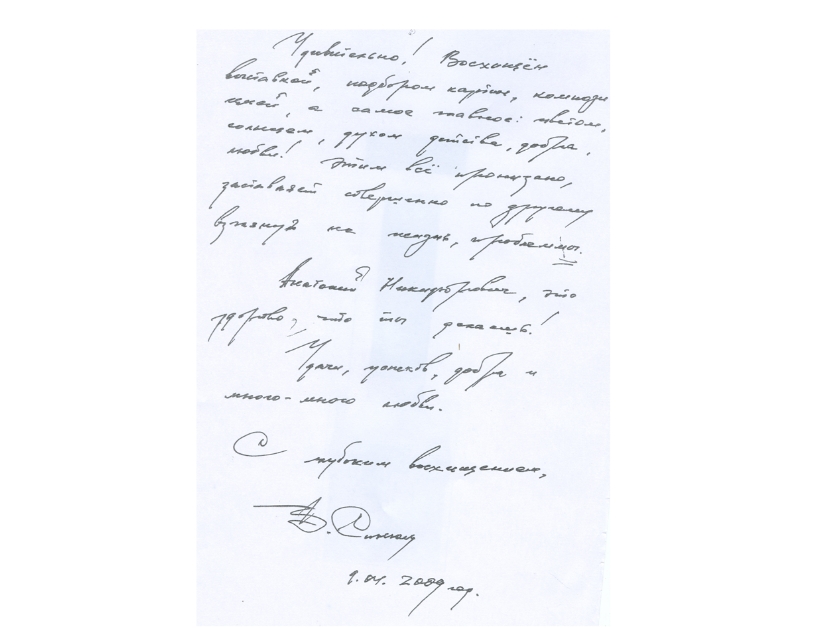 Удивительно! Восхищён
выставкой, подбором картин, компози
цией, а самое главное: цветом,
солнцем, духом детства, добра,
любви! Этим всё пронизано,
заставляет совершенно по другому
взглянуть на жизнь, проблемы.
Анатолий Никифорович, это
здорово, что ты делаешь!
Удачи, успехов, добра и
много-много любви.
С глубоким восхищением,
9.04. 2009 год.